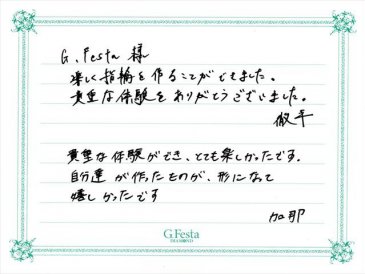 G.Festa 様
楽しく指輪を作ることができました。
貴重な体験をありがとうございました。
俊平
貴重な体験ができ、とても楽しかったです。
自分達が作ったものが、形になって
嬉しかったです
加那
G.Festa
DIAMOND